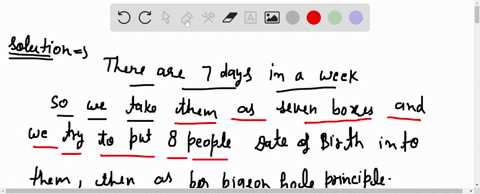 Solution =>
There are 7 days in a week
So we take them as seven boxes and
we try to put 8 people Date of Birth in to
them, then as per pigeon hole principle.